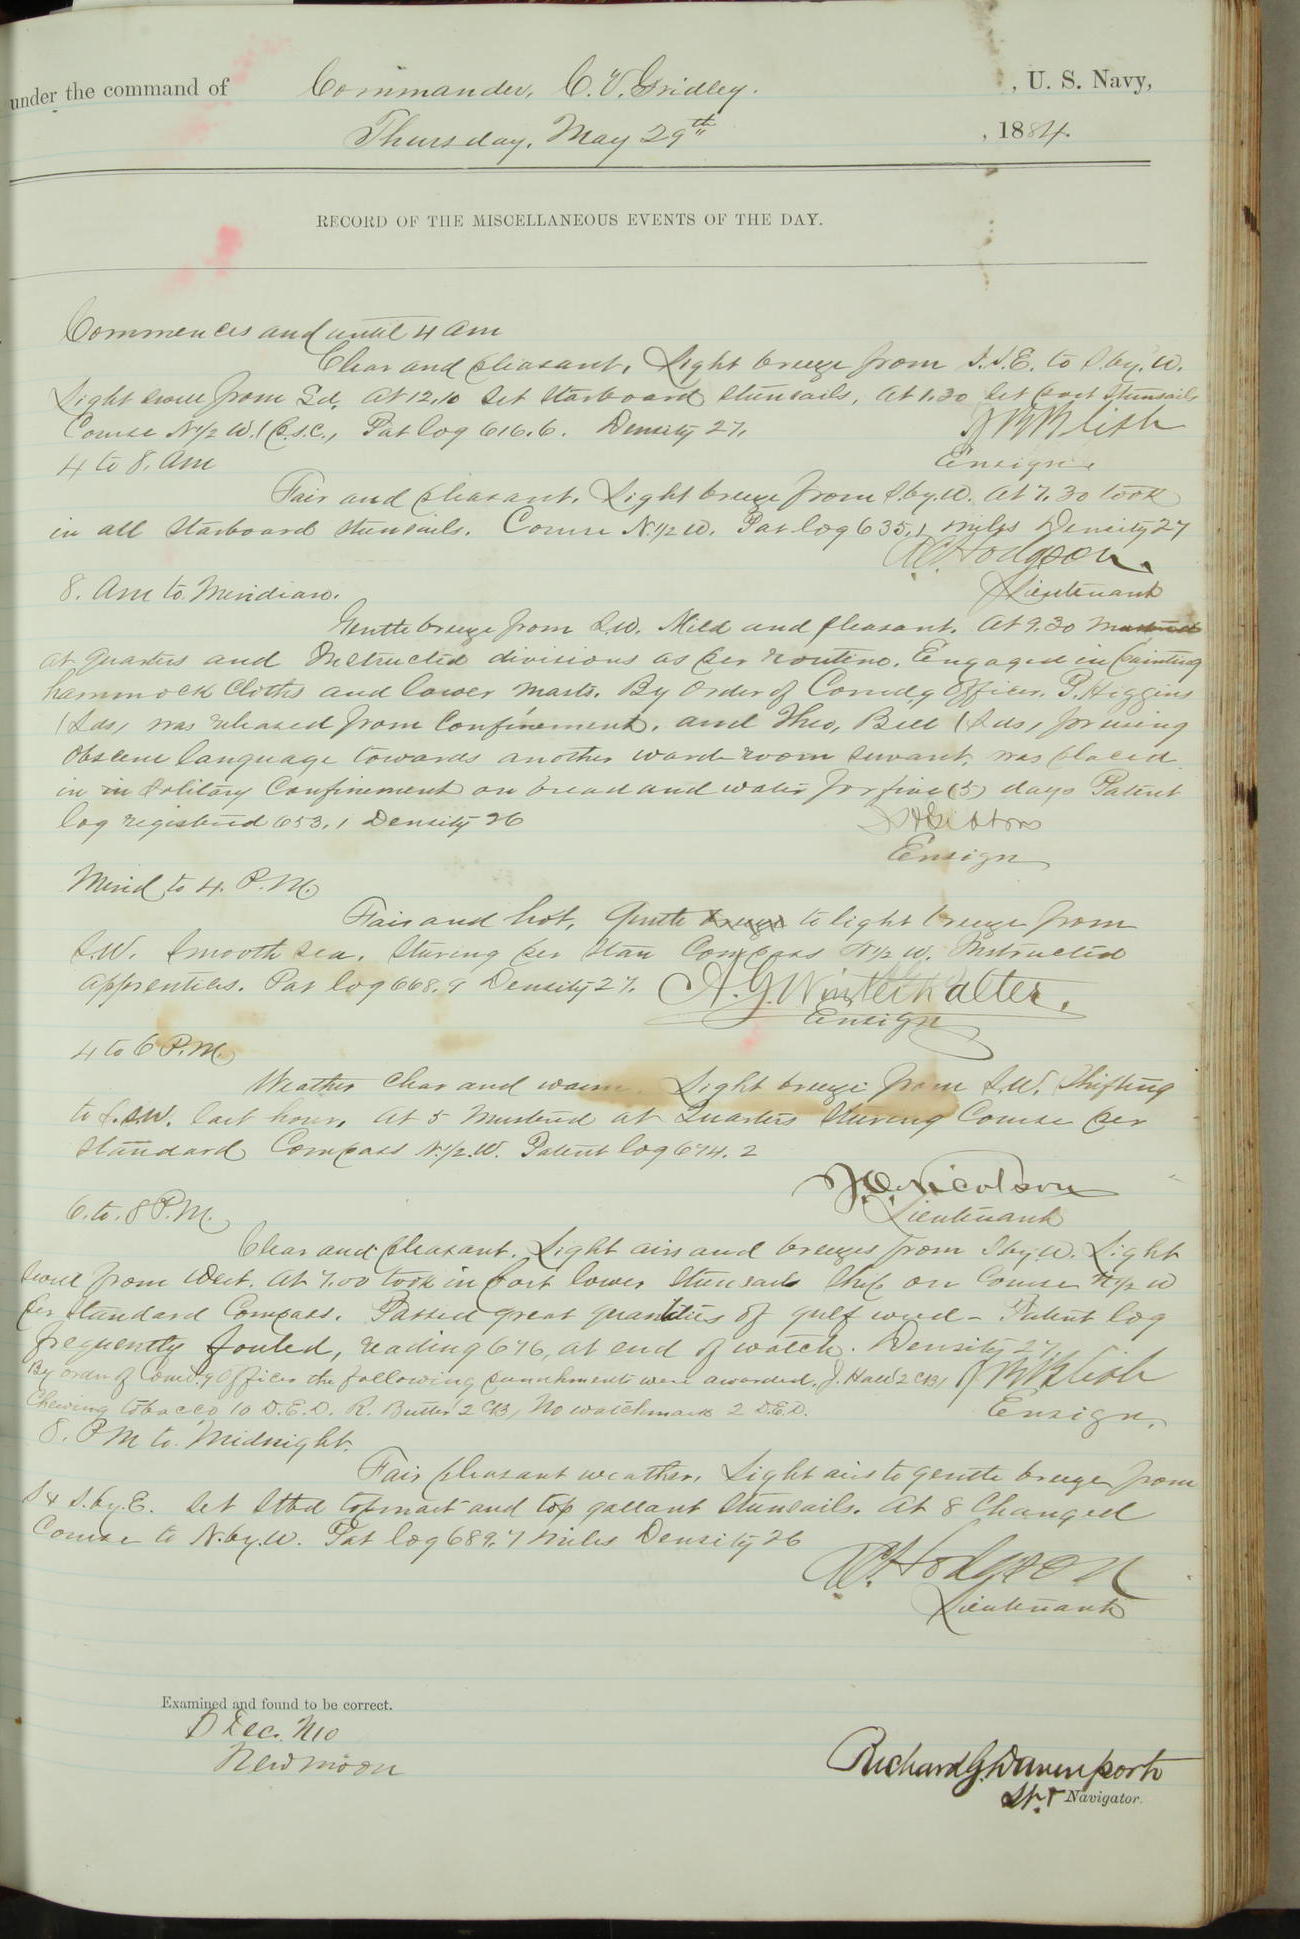 under the command of Commander, C. V. Gridley. , U. S. Navy,
Thursday, May 29th , 1884.
RECORD OF THE MISCELLANEOUS EVENTS OF THE DAY.
Commences and until 4 am
Clear and pleasant, Light breeze from S.S.E. to S.by.W.
Light swell from Sd. At 12.10 Set Starboard Stunsails, At 1.30 Set port Stunsails
Course N1/2 W. (p.s.c., Pat log 616.6. Density 27.
Ensign.
4 to 8. Am
Fair and pleasant. Light breeze from S.by.W. At 7.30 took
in all Starboard stunsails. Course N.1/2 W. Pat log 635.1 miles Density 27
Hodgson.
Lieutenant
8. Am to Meridian.
Gentle breeze from S.W. Mild and pleasant. At 9.30 Mustered
at quarters and Instructed divisions as per routine. Engaged in painting
hammock cloths and lower masts. By order of Comdg Officer. P. Higgins
(Lds, was released from confinement, and Theo, Bell (Lds, for using
Obscene language towards another ward-room servant, was placed
in in Solitary Confinement on bread and water for five (5) days Patent
log registered 653.1 Density 26
Ensign
Merid to 4. P.M.
Fair and hot, Gentle breeze to light breeze from
S.W. Smooth sea. Steering per Stan Compass N1/2 W. Instructed
apprentices. Pat log 668.9 Density 27. A. G. Winterhalter.
Ensign
4 to 6 P.M.
Weather clear and warm. Light breeze from S.W. Shifting
to S.SW. last hour. At 5 Mustered at Quarters Steering Course per
Standard Compass N.1/2.W. Patent log 674.2
Nicolson
Lieutenant
6. to. 8 P.M.
Clear and pleasant. Light airs and breezes from S by.W. Light
swell from West. At 7.00 took in port lower Stunsails Ship on Course N1/2 W
per Standard Compass. Passed great quantities of gulf weed - Patent log
frequently fouled, reading 676, at end of watch. Density 27,
By order of Comd'g Officer the following punishments were awarded, J. Hall 2 CB,
Chewing tobacco 10 D.E.D. R. Butler 2 CB, No watchmark 2 D.E.D.
Ensign.
8. PM to. Midnight.
Fair pleasant weather, Light airs to gentle breeze from
S & S.by.E. Set Stbd topmast and top gallant Stunsails. At 8 Changed
Course to N.by.W. Pat log 689.7 miles Density 26
Hodgson
Lieutenant
Examined and found to be correct.
D Dec. N10
New moon
Richard G. Davenport
Lt. & Navigator.